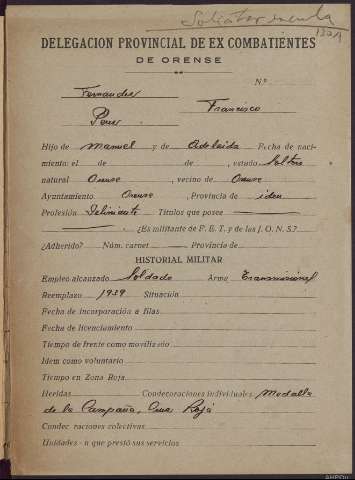 Solicitar
1301
DELEGACION PROVINCIAL DE EX COMBATIENTES
DE ORENSE
N.º
Fernandez
Francisco
Perez
Hijo de Manuel y de Adelaida Fecha de naci-
miento: el de de , estado Soltero
natural Orense, vecino de Orense
Ayuntamiento Orense, Provincia de idem
Profesión Delineante Títulos que posee
¿Es militante de F. E. T. y de las J. O. N. S.?
¿Adherido? Núm. carnet Provincia de
HISTORIAL MILITAR
Empleo alcanzado Soldado Arma
Reemplazo 1939 Situación
Fecha de incorporación a filas
Fecha de licenciamiento
Tiempo de frente como movilizado
Idem como voluntario
Tiempo en Zona Roja
Heridas Condecoraciones individuales Medalla
de la Campaña, Cruz Roja
Condecoraciones colectivas
Unidades en que prestó sus servicios